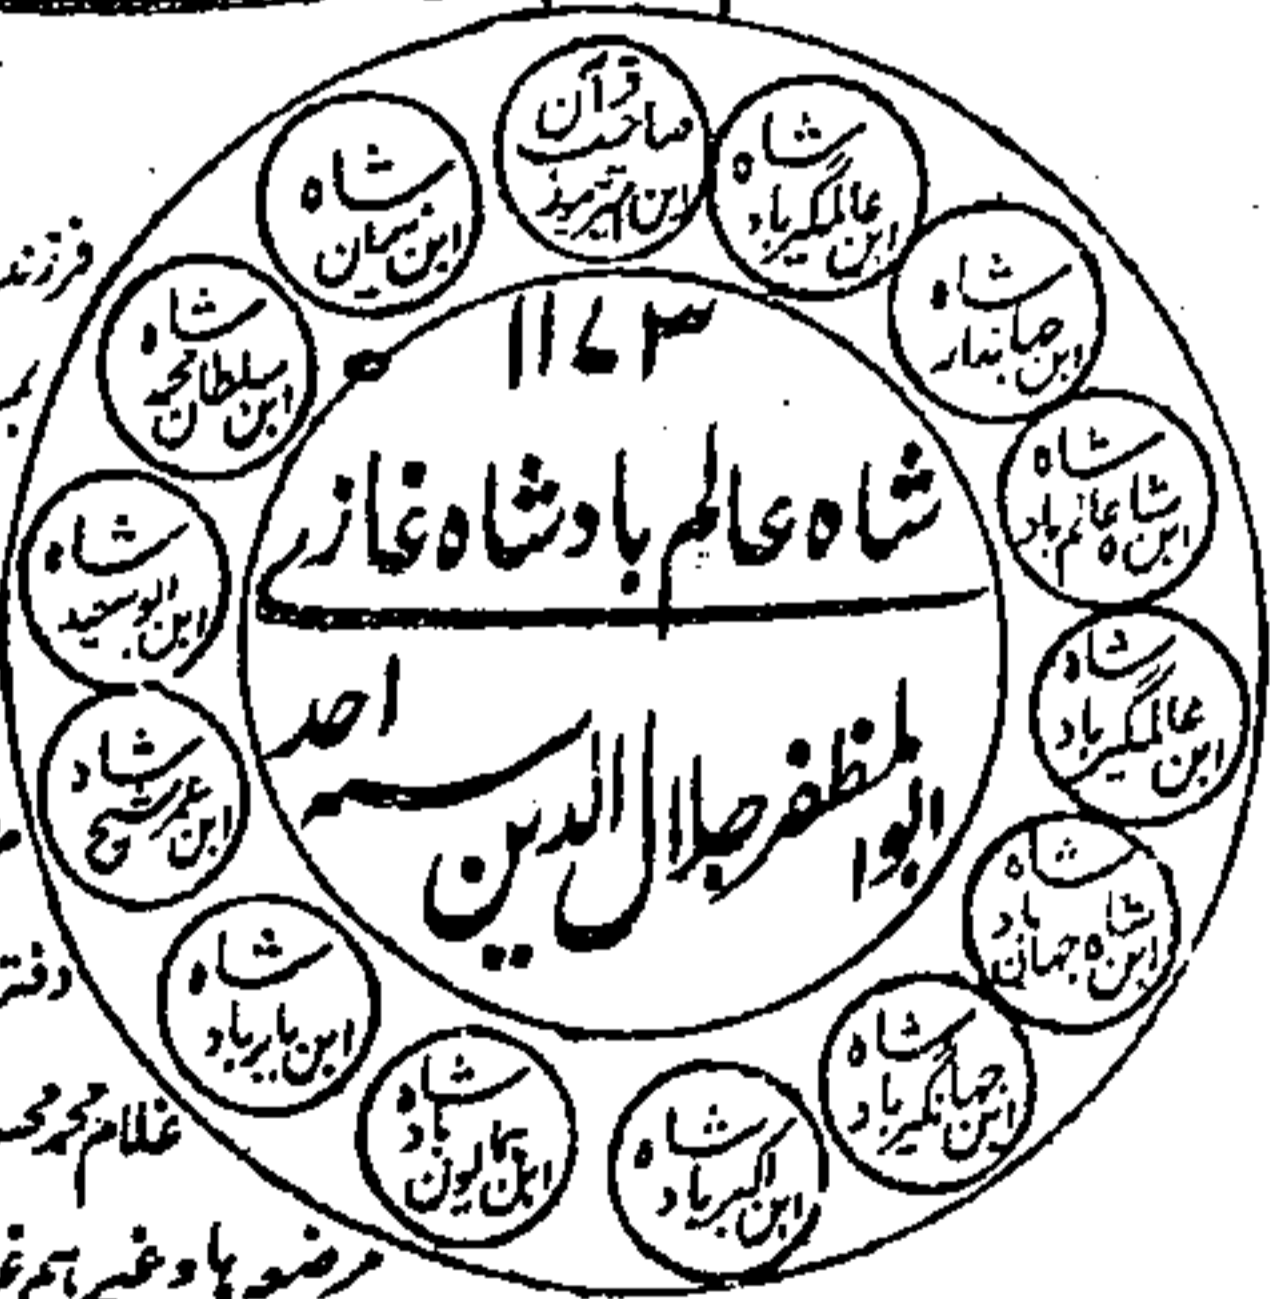 ۱۱۷۳
شاه عالم بادشاه غازی
ابوالمظفر جلال الدین سنه احد
ابن امیر تیمور
صاحب قرآن
ابن عالمگیر باد
شاه
ابن جهاندار
شاه
ابن شاه عالم باد
شاه
ابن عالمگیر باد
شاه
ابن شاه جهان باد
شاه
ابن جهانگیر باد
شاه
ابن اکبر باد
شاه
ابن همایون باد
شاه
ابن بابر باد
شاه
ابن عمر شیخ
شاه
ابن ابو سعید
شاه
ابن سلطان محمد
شاه
ابن میران
شاه
فرزند
دفتر
غلام محمد